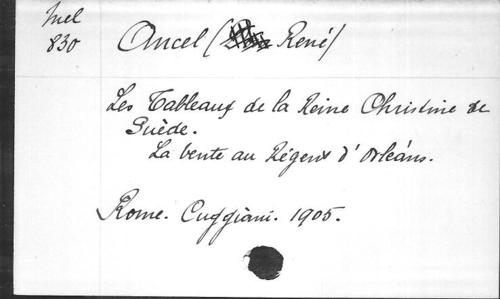 Mel
830
Ancel (René)
Les Tableaux de la Reine Christine de
Suède.
La vente au Régent d'Orléans.
Rome. Cuggiani. 1905.